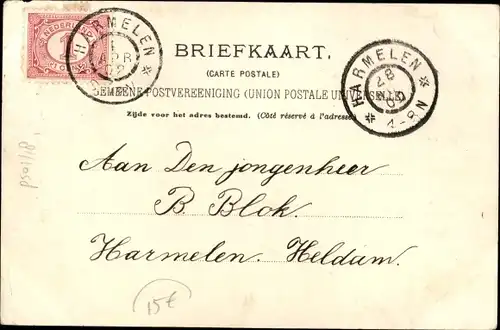 NEDERLAND
HARMELEN
1
APR
BRIEFKAART.
(CARTE POSTALE)
ALGEMEENE POSTVEREENIGING (UNION POSTALE UNIVERSELLE)
Zijde voor het adres bestemd. (Côté réservé à l'adresse)
HARMELEN
28
4-8N
Aan Den jongenheer
B. Blok.
Harmelen. Heldam.
15€